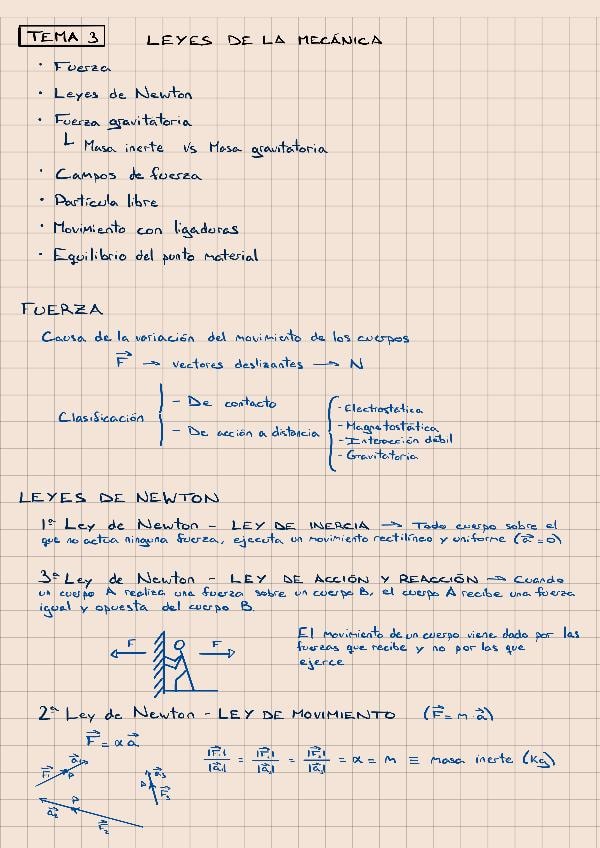 TEMA 3 LEYES DE LA MECÁNICA
· Fuerza
· Leyes de Newton
· Fuerza gravitatoria
└ Masa inerte vs Masa gravitatoria
· Campos de fuerza
· Partícula libre
· Movimiento con ligaduras
· Equilibrio del punto material
FUERZA
Causa de la variación del movimiento de los cuerpos
F⃗ → vectores deslizantes → N
Clasificación
- De contacto
- De acción a distancia
- Electrostática
- Magnetostática
- Interacción débil
- Gravitatoria
LEYES DE NEWTON
1ª Ley de Newton - LEY DE INERCIA → Todo cuerpo sobre el
que no actua ninguna fuerza, ejecuta un movimiento rectilíneo y uniforme (a⃗ = 0)
3ª Ley de Newton - LEY DE ACCIÓN Y REACCIÓN → Cuando
un cuerpo A realiza una fuerza sobre un cuerpo B, el cuerpo A recibe una fuerza
igual y opuesta del cuerpo B.
F F
El movimiento de un cuerpo viene dado por las
fuerzas que recibe y no por las que
ejerce
2ª Ley de Newton - LEY DE MOVIMIENTO (F⃗ = m·a⃗)
F⃗ = αa⃗
|F⃗₁|/|a⃗₁| = |F⃗₂|/|a⃗₂| = |F⃗₃|/|a⃗₃| = α = m ≡ masa inerte (Kg)
F⃗₁ a⃗₁ P
a⃗₂ P F⃗₂
a⃗₃ P F⃗₃